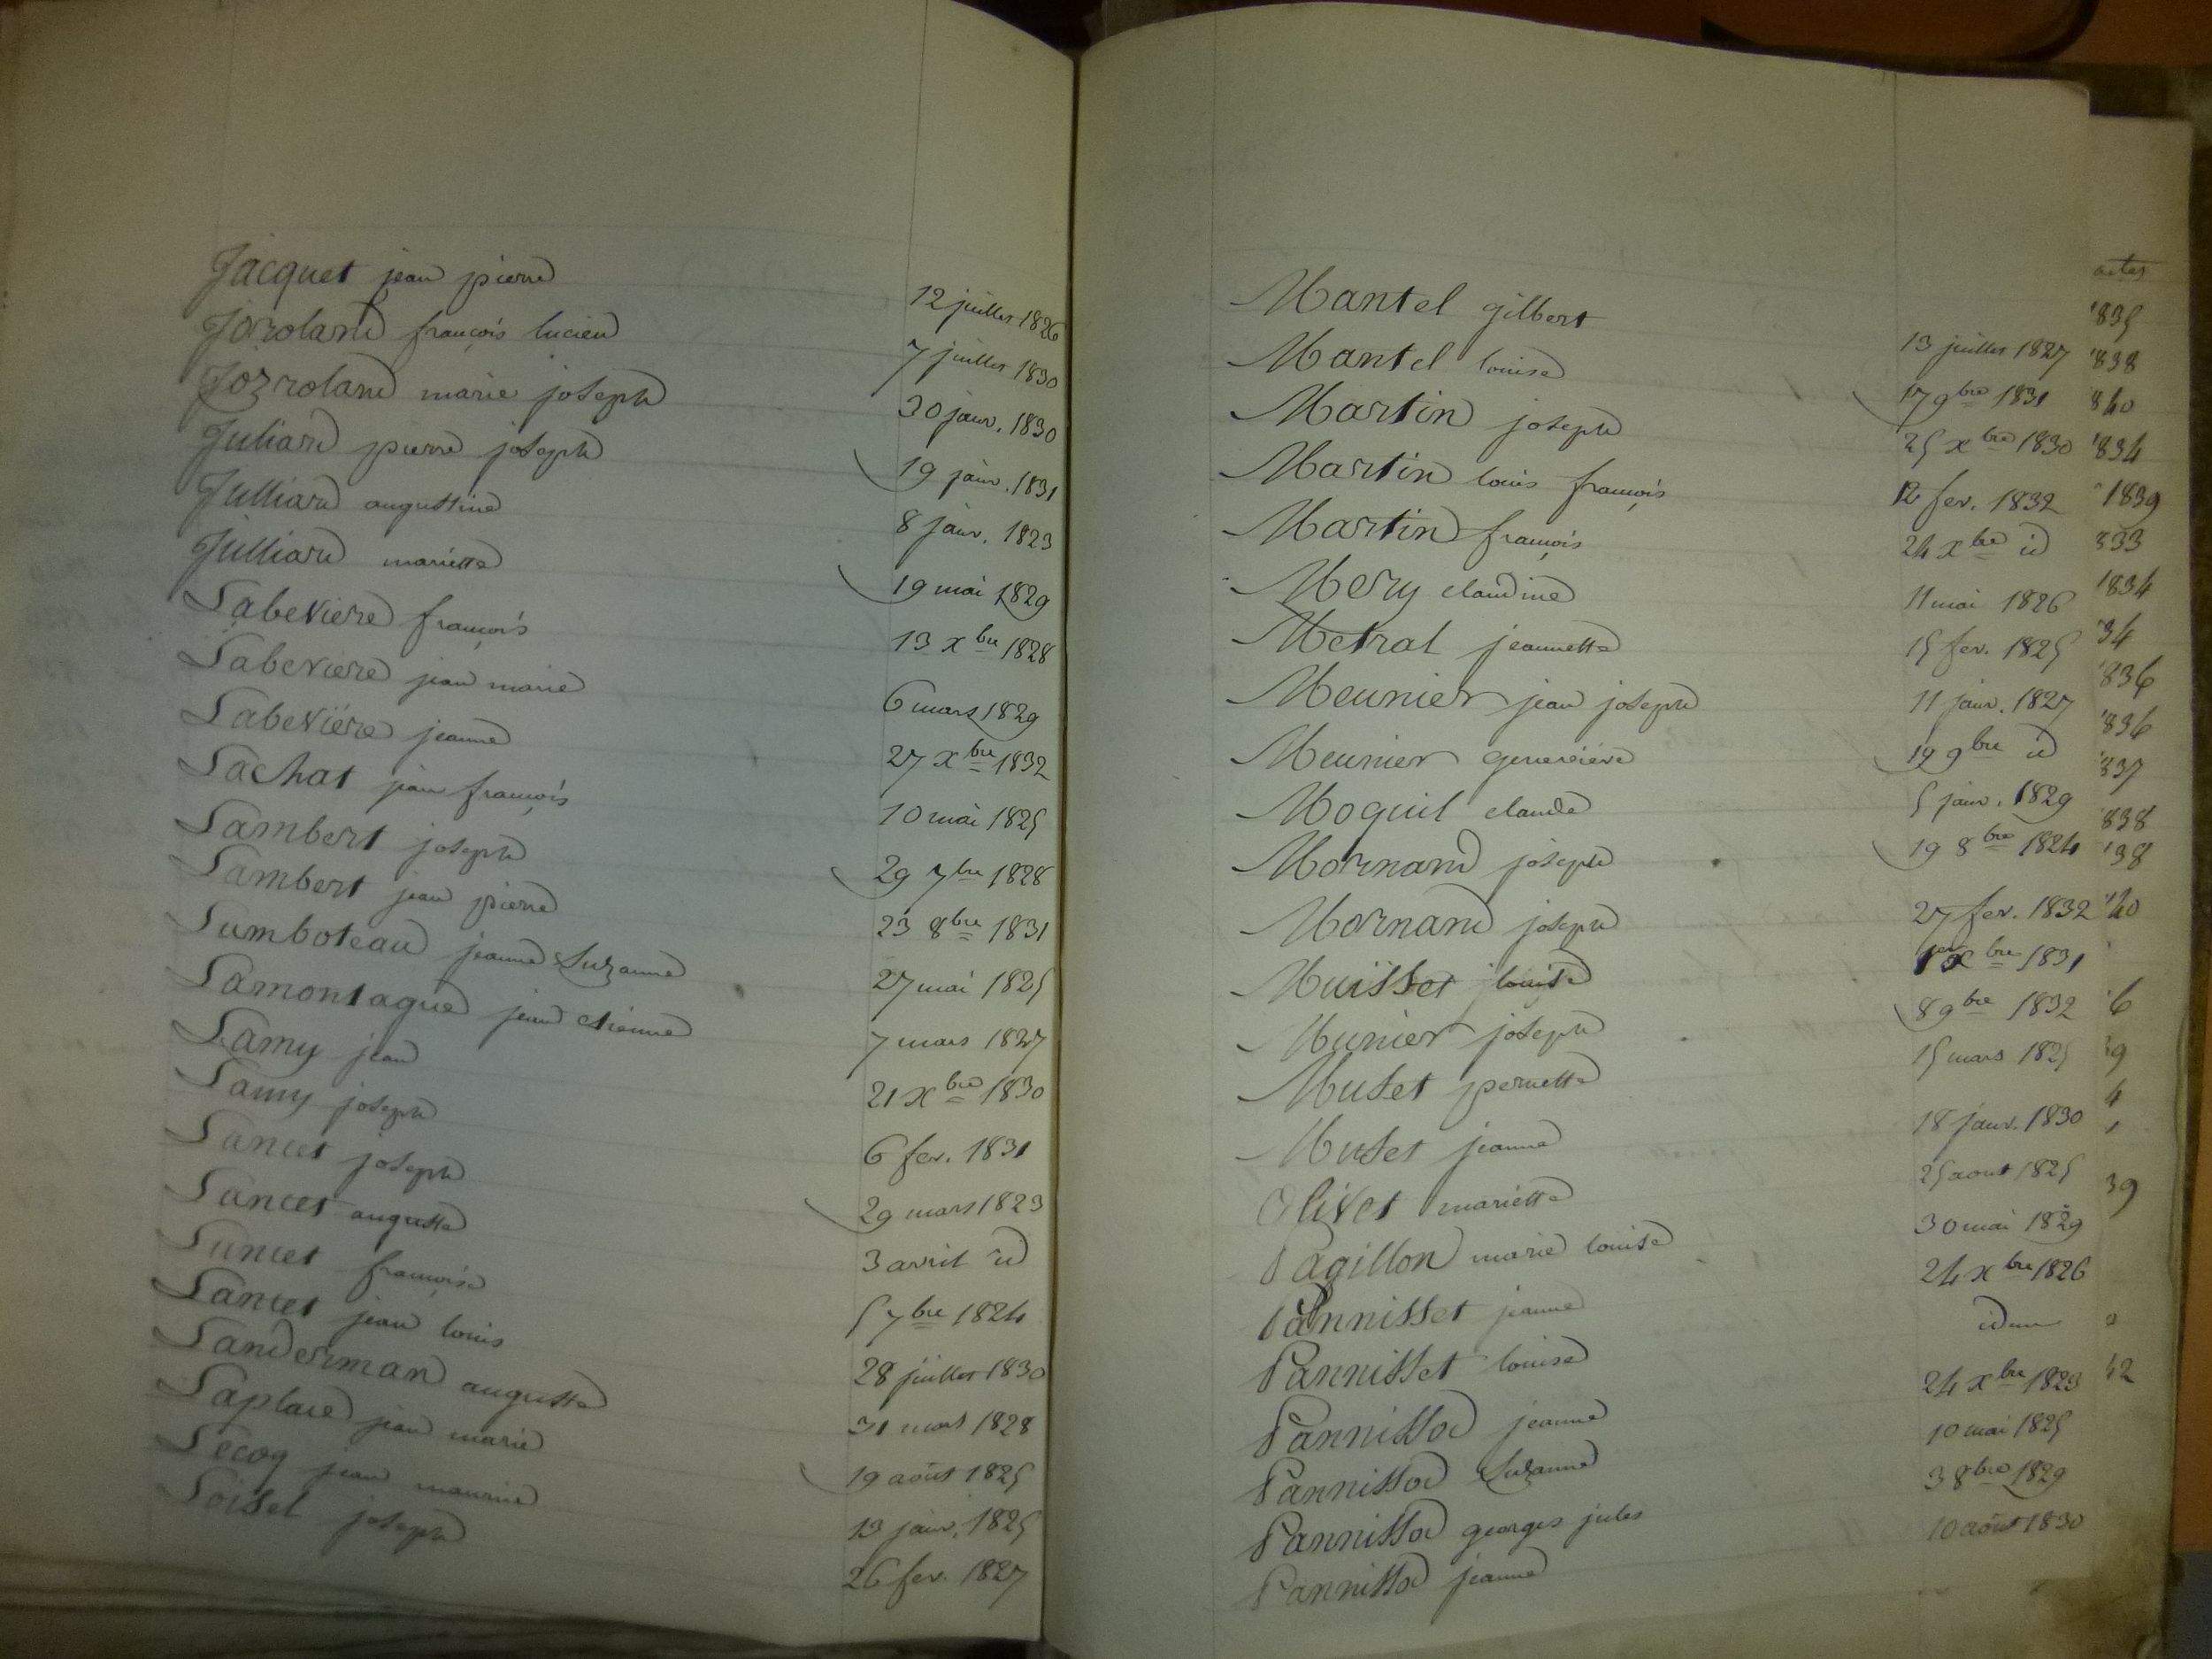 Jacquet jean pierre 12 juillet 1826
Jozroland françois lucien 7 juillet 1830
Jozroland marie joseph 30 janv. 1830
Juliard pierre joseph 19 janv. 1831
Julliard augustine 8 janv. 1823
Julliard mariette 19 mai 1829
Labeviere françois 13 xbre 1828
Labeviere jean marie 6 mars 1829
Labeviere jeanne 27 xbre 1832
Lachat jean françois 10 mai 1825
Lambert joseph 29 7bre 1828
Lambert jean pierre 23 8bre 1831
Lamboteau jeanne Suzanne 27 mai 1825
Lamontagne jean etienne 7 mars 1827
Lamy jean 21 xbre 1830
Lamy joseph 6 fev. 1831
Lancet joseph 29 mars 1823
Lancet auguste 3 avril id
Lancet françoise 5 7bre 1824
Lancet jean louis 28 juillet 1830
Landerman auguste 31 mars 1828
Laplace jean marie 19 août 1825
Lecoq jean maurice 13 janv. 1825
Loisel joseph 26 fev. 1827
Mantel gilbert 13 juillet 1827
Mantel louise 17 9bre 1831
Martin joseph 25 xbre 1830
Martin louis françois 12 fev. 1832
Martin françois 24 xbre id
Mery claudine 11 mai 1826
Metral jeannette 15 fev. 1825
Meunier jean joseph 11 janv. 1827
Meunier genevieve 19 9bre id
Moquil claude 5 janv. 1829
Mornand joseph 19 8bre 1824
Mornand joseph 27 fev. 1832
Muisset louise 1er xbre 1831
Munier joseph 8 9bre 1832
Muset pernette 15 mars 1825
Muset jeanne 18 janv. 1830
Olivet mariette 25 aout 1825
Pagillon marie louise 30 mai 1829
Pannisset jeanne 24 xbre 1826
Pannisset louise idem
Pannissod jeanne 24 xbre 1823
Pannissod Suzanne 10 mai 1825
Pannissod georges jules 3 8bre 1829
Pannissod jeanne 10 août 1830
actes
1835
1838
1840
1834
1839
833
1834
34
1836
1836
837
838
38
40
6
39
4
39
32